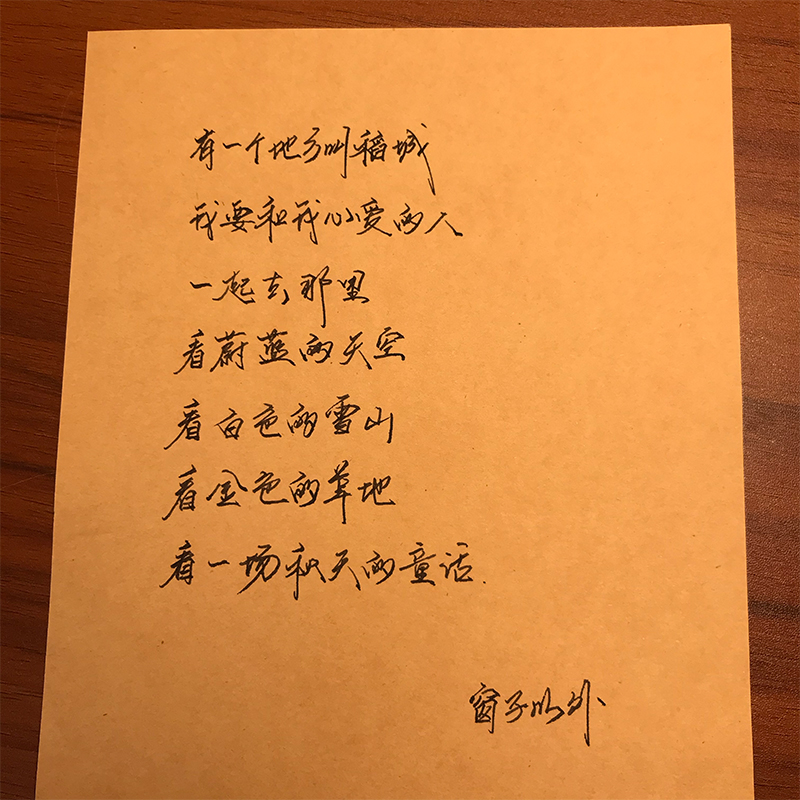 有一个地方叫稻城
我要和我心爱的人
一起去那里
看蔚蓝的天空
看白色的雪山
看金色的草地
看一场秋天的童话.
窗子以外